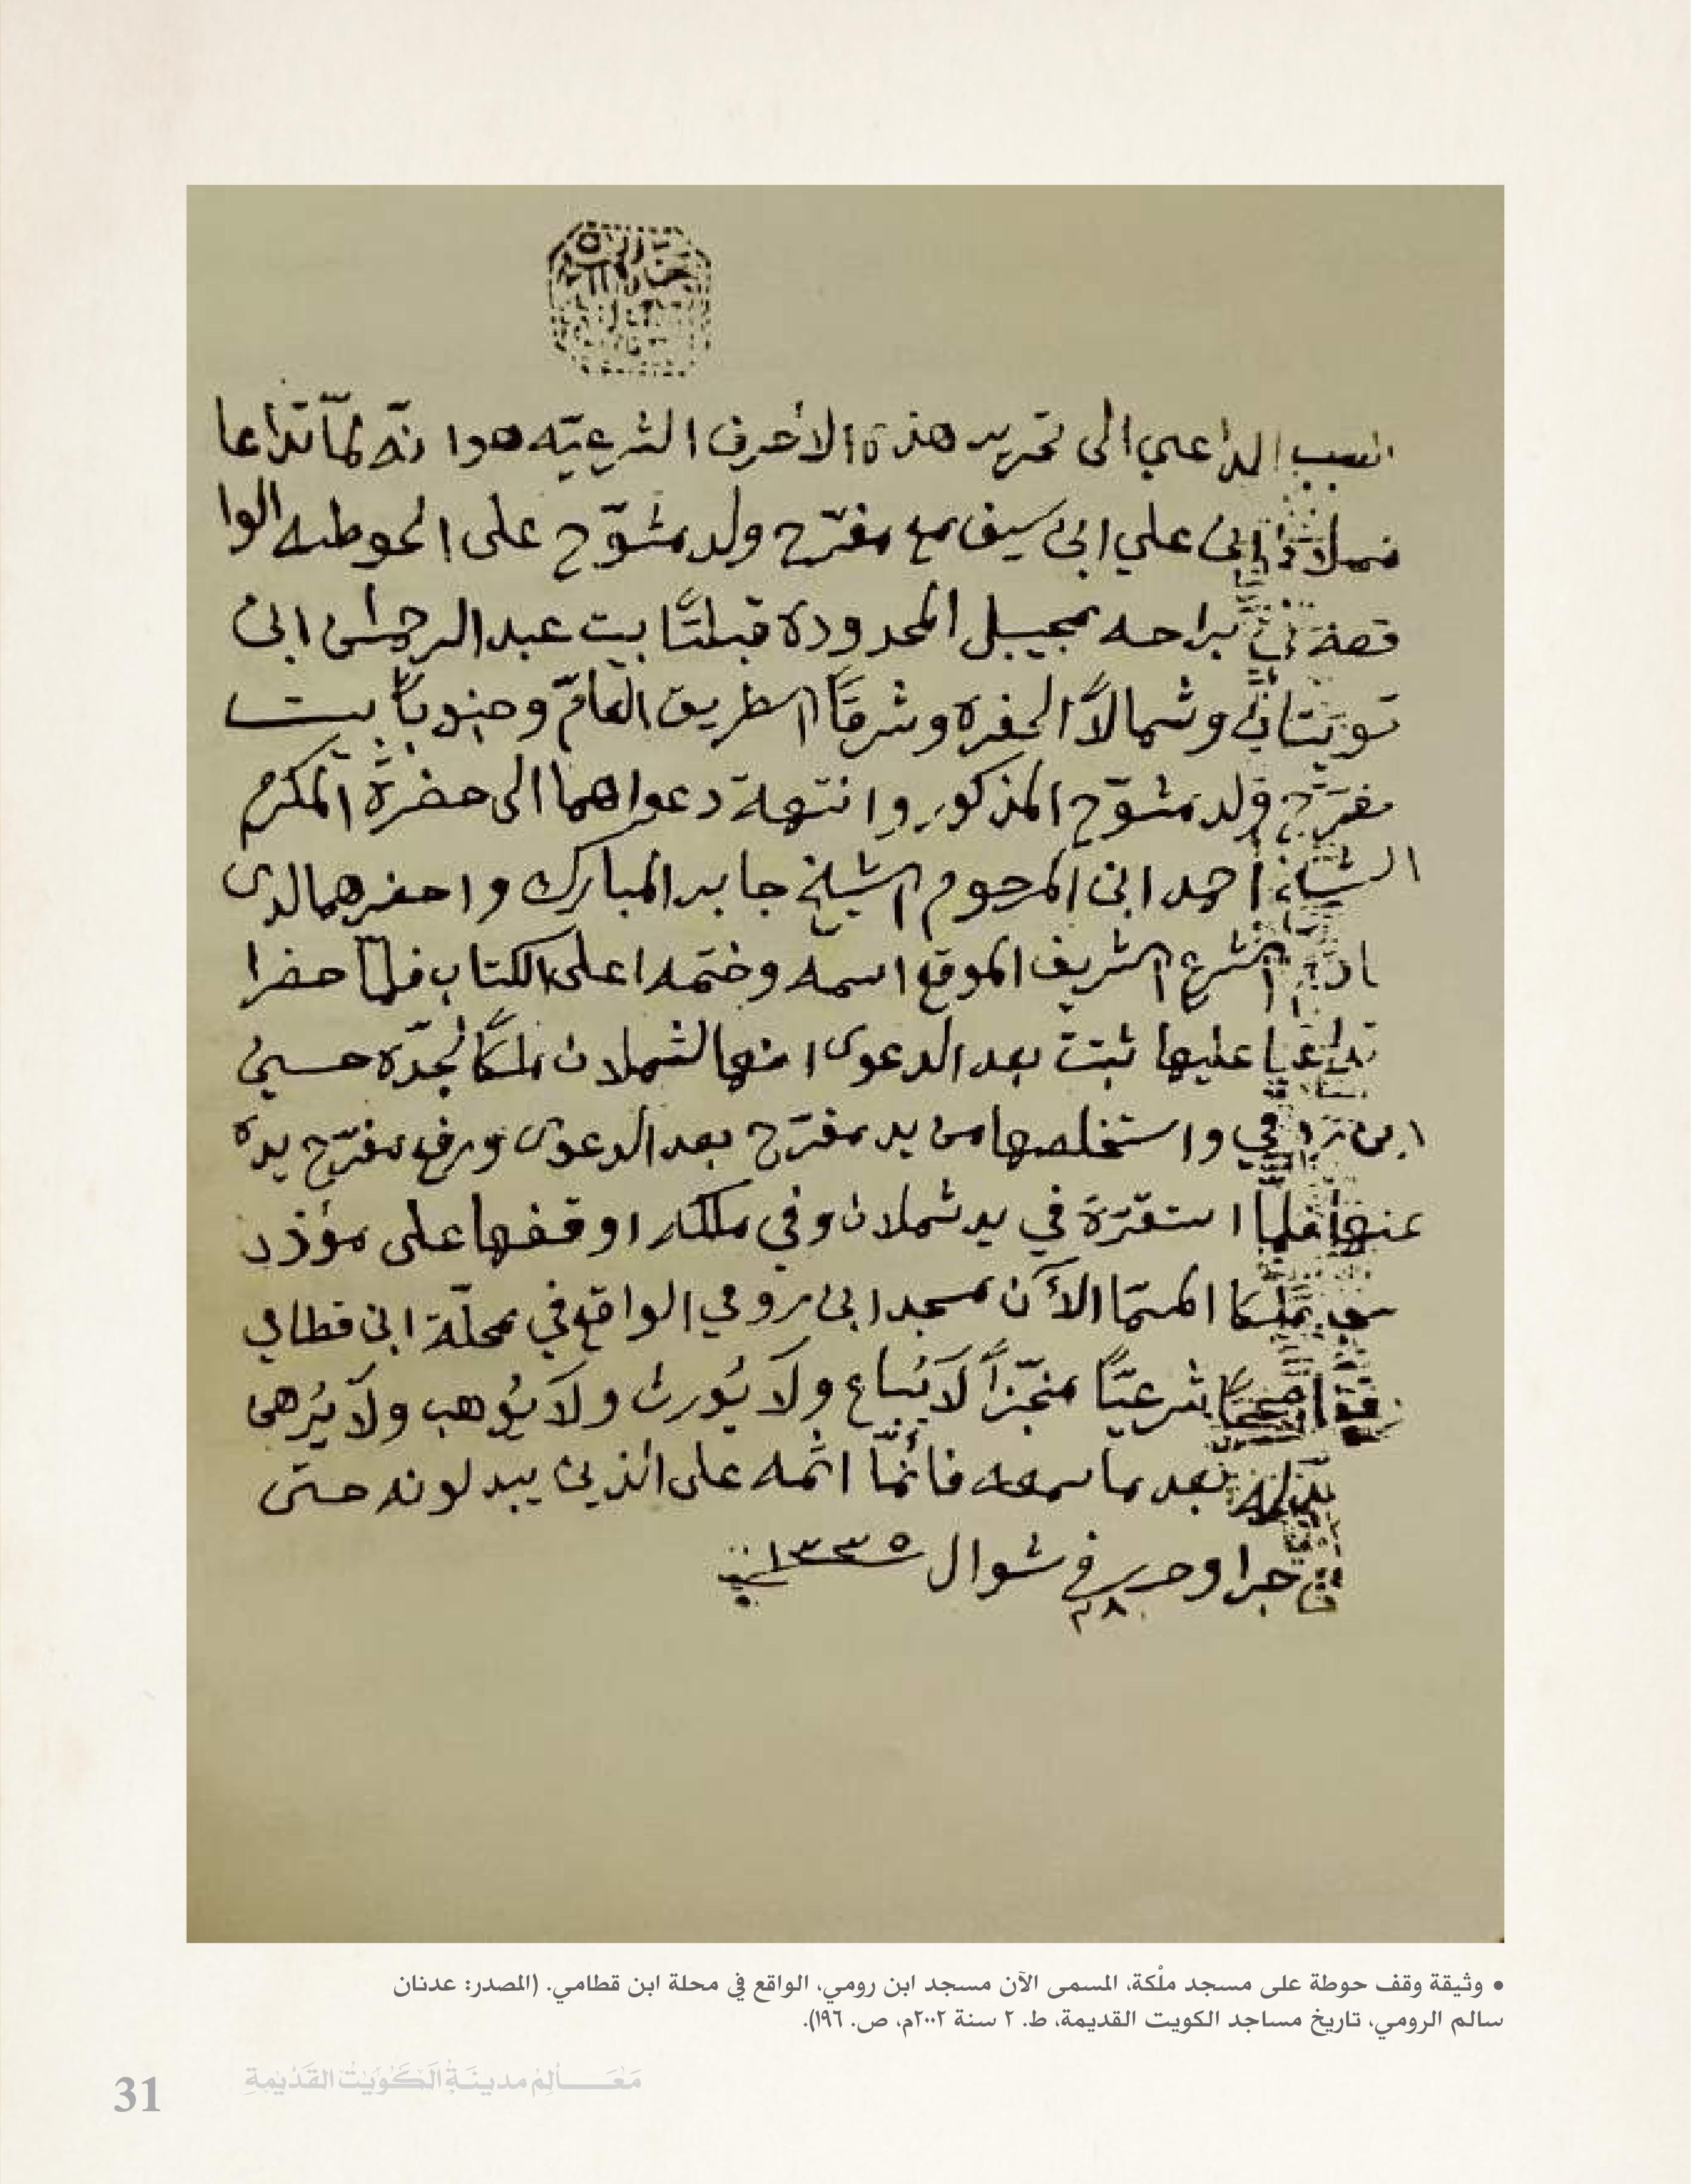 السبب الداعي الى تحرير هذه الاحرف الشرعيّه هو انّه لمّا تداعا
شملان ابن علي ابن سيف مع مفرّح ولد مشوّح على الحوطه الوا
قعة في براحه مجيبل المحدودة قبلتًا بيت عبد الرحمن ابن
تويتان وشمالاً الحفره وشرقًا الطريق العامّ وجنوبًا بيت
مفرّح ولد مشوّح المذكور وانتهة دعواهما الى حضرة المكرم
الشيخ احمد ابن المرحوم الشيخ جابر المبارك واحضرهما لدى
الشرع الشريف الموقع اسمه وختمه اعلى الكتاب فلمّا حضرا
تداعيا عليها ثبت بعد الدعوى انها لشملان ملكًا لجدّه حسين
ابن رومي واستخلصها من يد مفرّح بعد الدعوى ورفع مفرّح يده
عنها فلمّا استقرّة في يد شملان وفي ملكه اوقفها على مؤذن
مسجد ملكا المسمّا الآن مسجد ابن رومي الواقع في محلّة ابن قطامي
وقفًا صحيحًا شرعيًّا منجّزاً لاَ يُباع ولاَ يُورث ولاَ يُوهب ولاَ يُرهن
بعد ما سمعه فأنمّا اثمه على الذين يبدلونه حتى
جرا وحرر في ٢٨ شوال ١٣٣٥ سنة
• وثيقة وقف حوطة على مسجد ملْكة، المسمى الآن مسجد ابن رومي، الواقع في محلة ابن قطامي. (المصدر: عدنان
سالم الرومي، تاريخ مساجد الكويت القديمة، ط. ٢ سنة ٢٠٠٢م، ص. ١٩٦).
مَعَالِمُ مدينَةِ الكُوَيْتِ القَدِيمَةِ
31